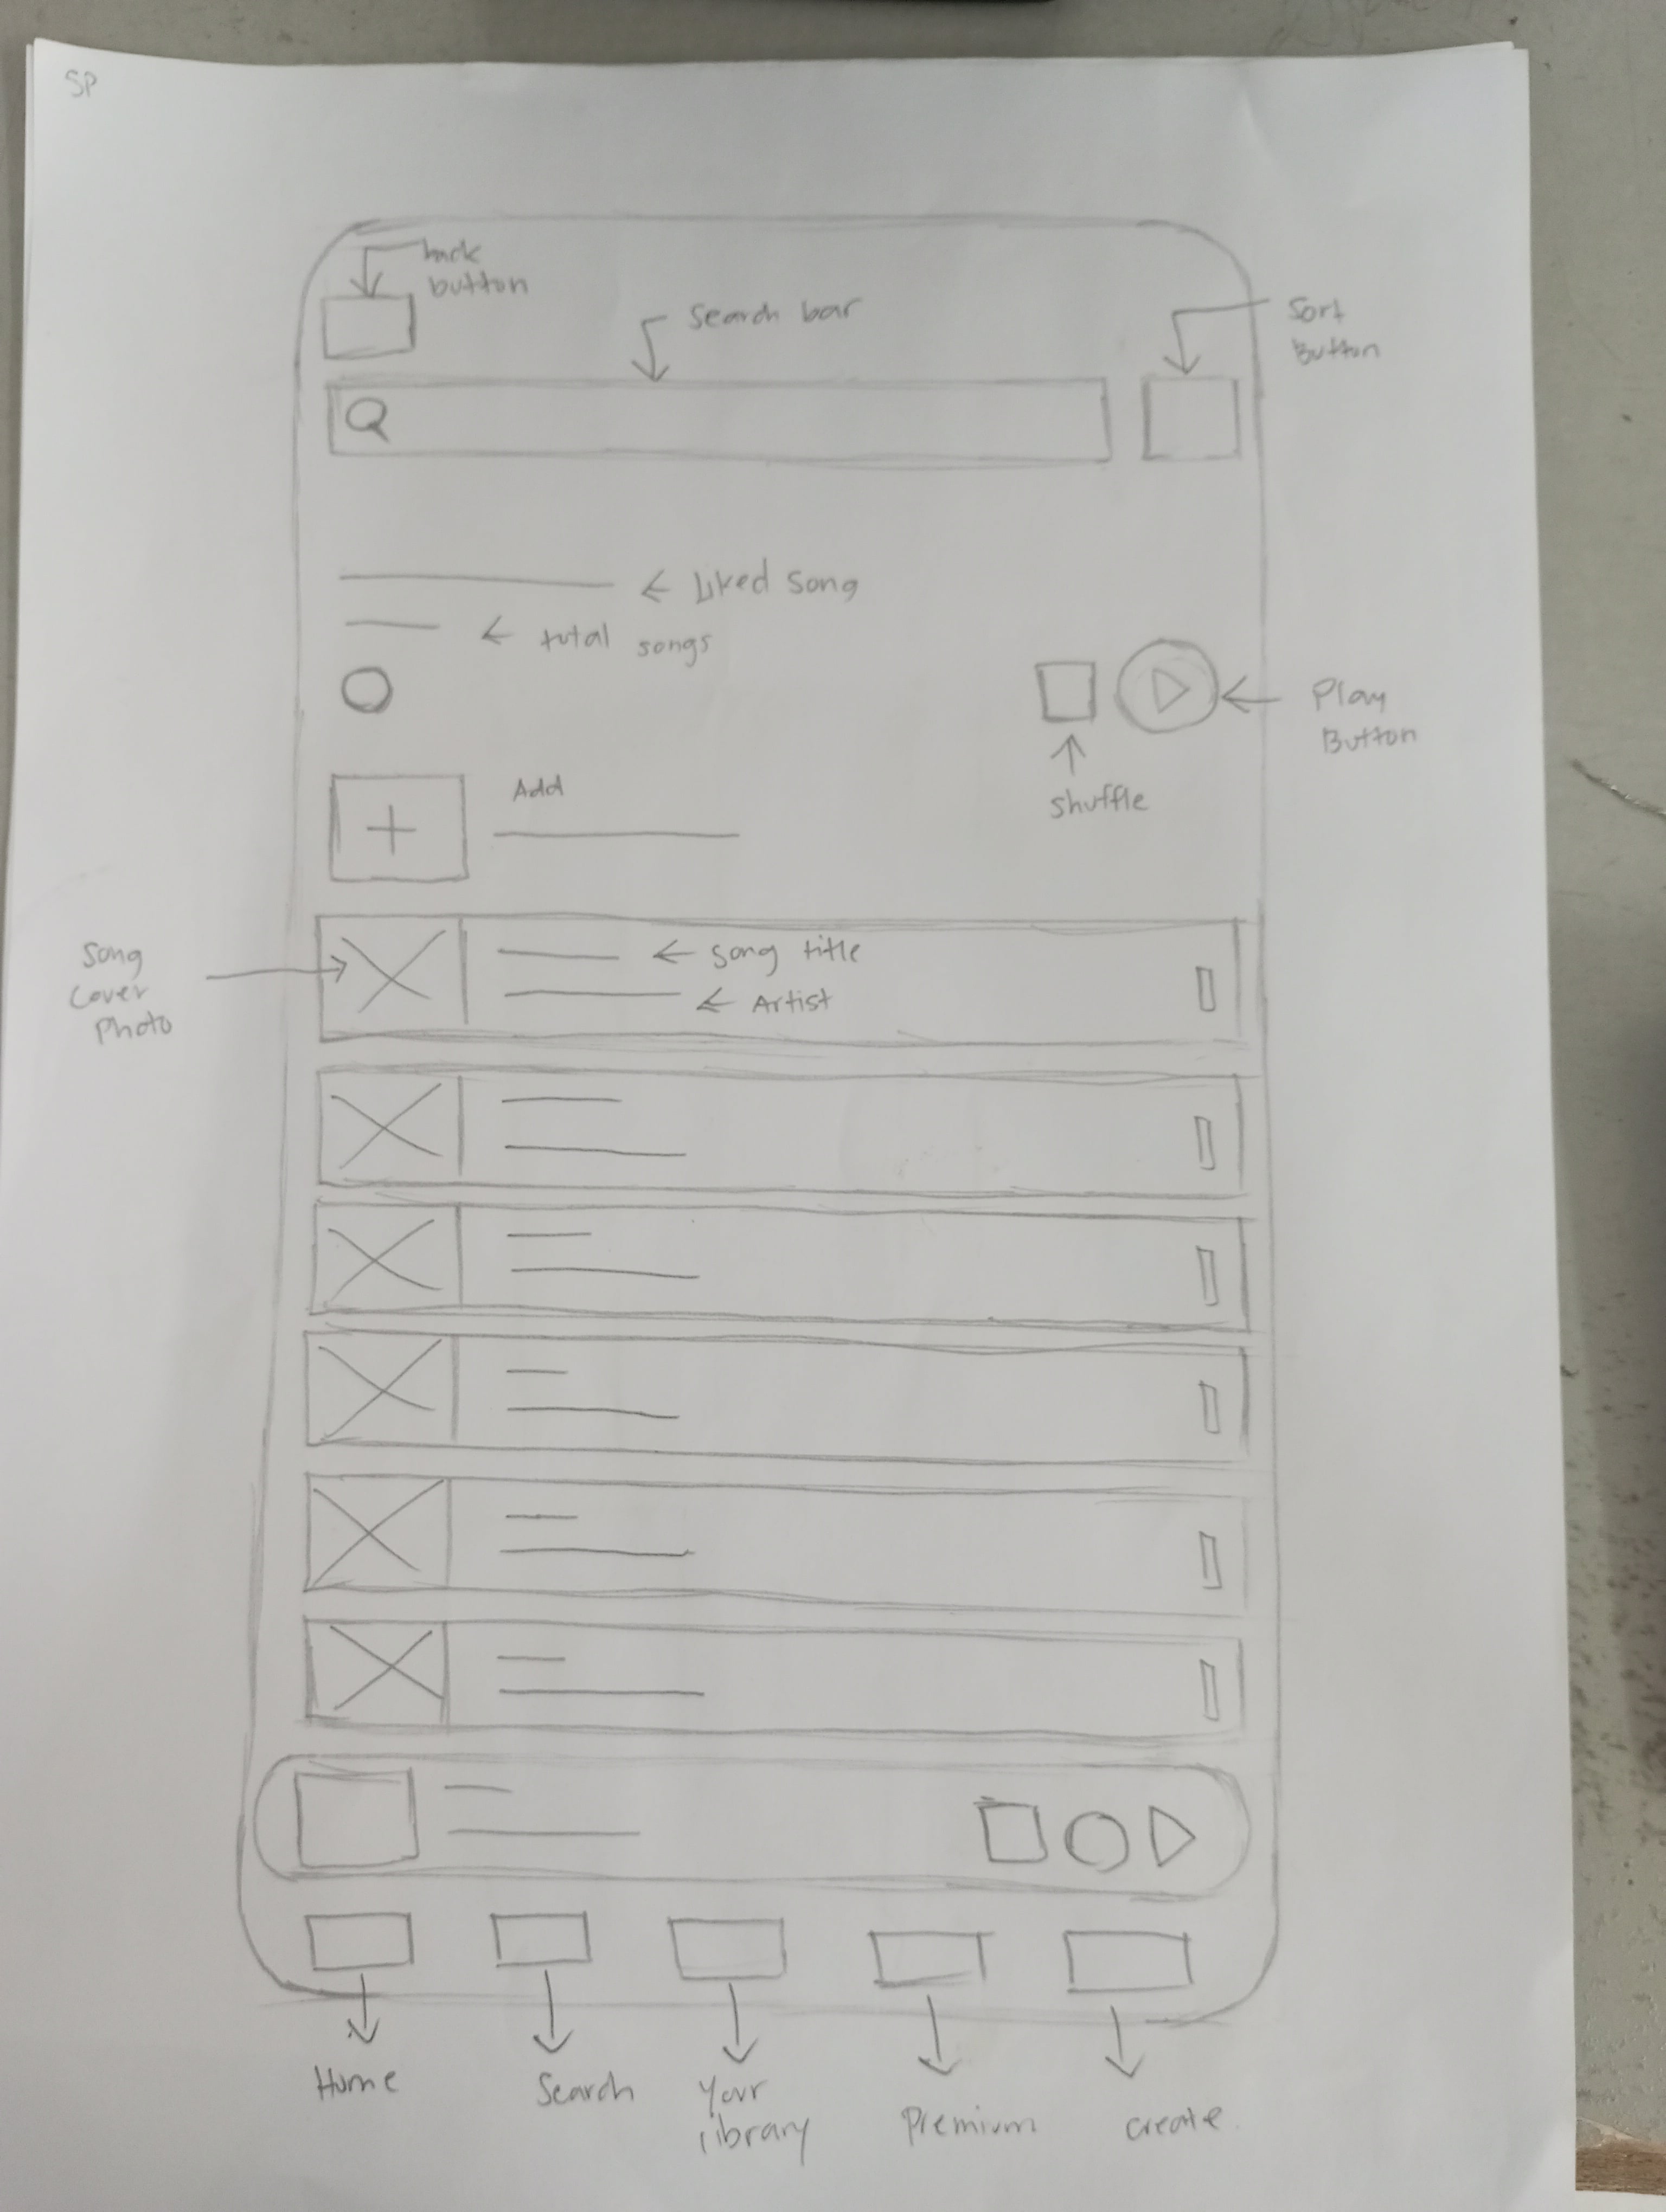 SP
back
button
search bar
Sort
Button
Liked song
total songs
Play
Button
shuffle
Add
Song
Cover
Photo
song title
Artist
Home
Search
Your
library
Premium
create.